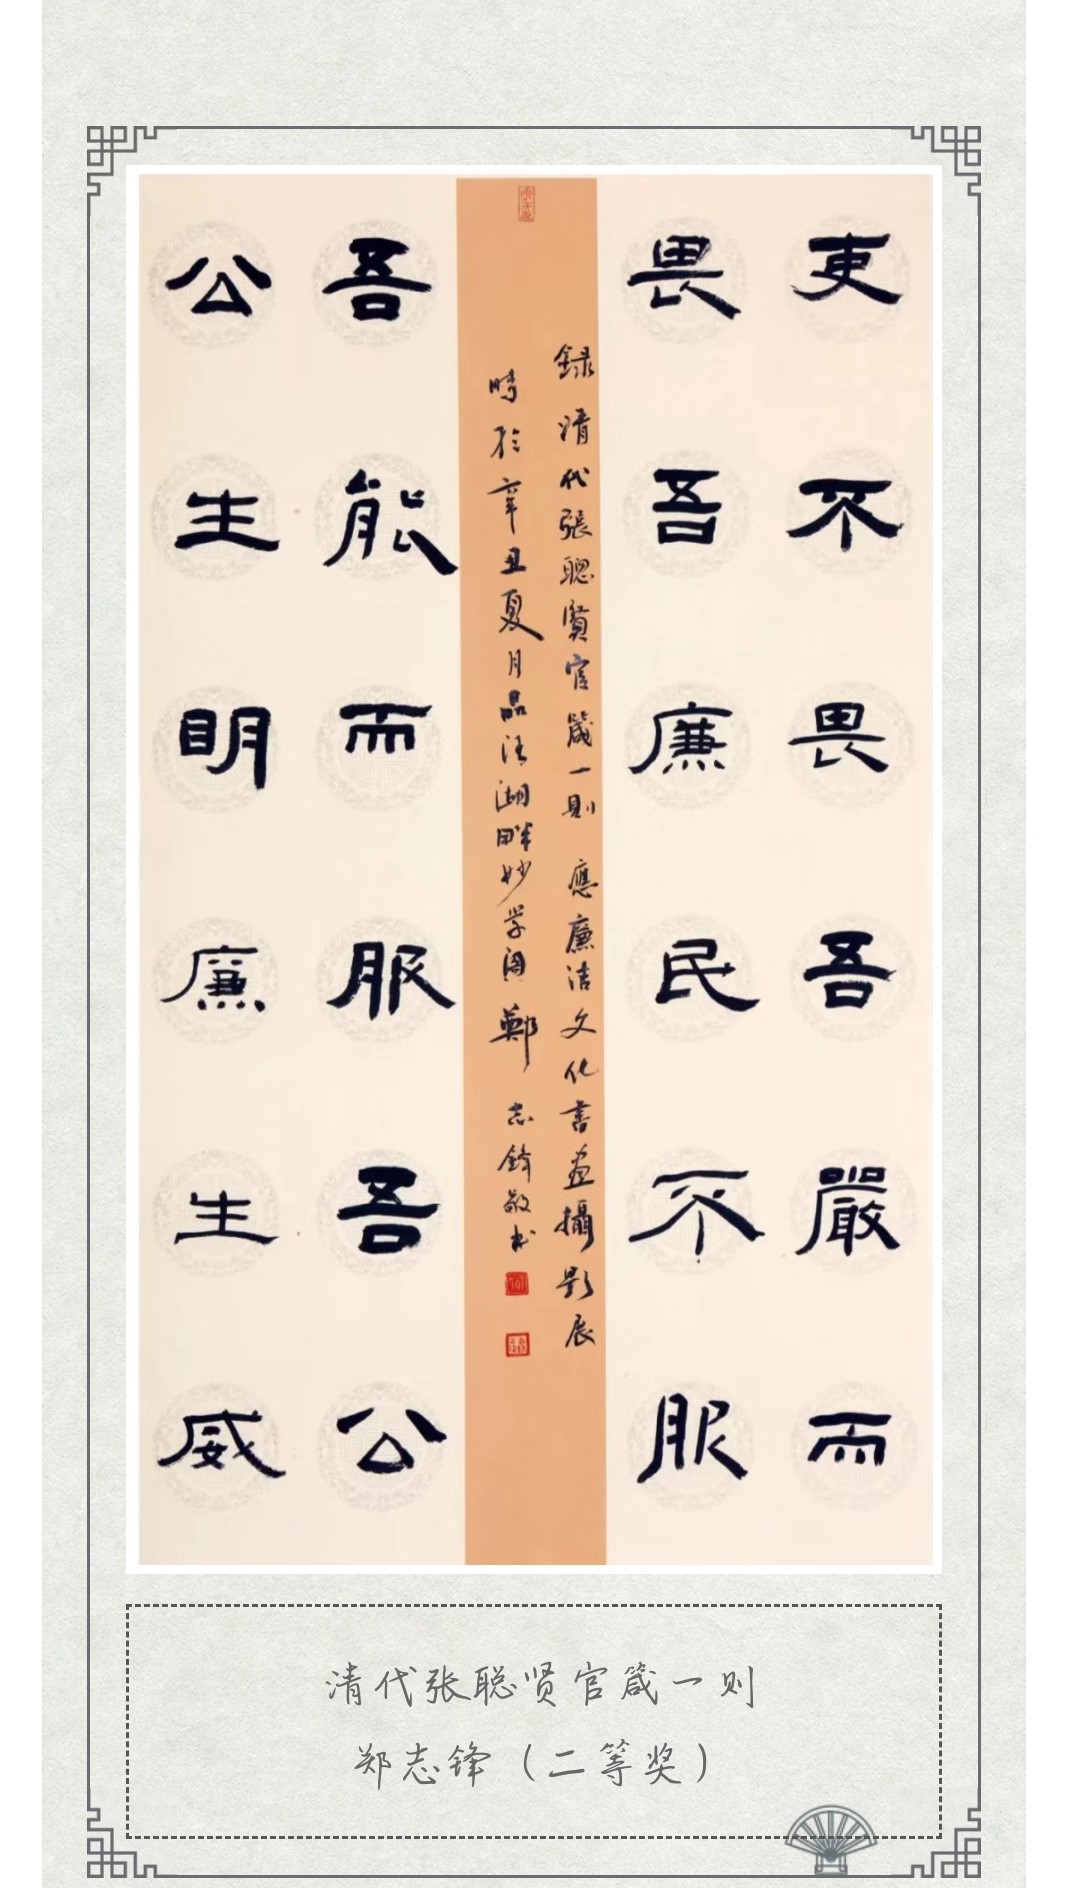 吏不畏吾嚴而
畏吾廉民不服
錄清代張聰賢官箴一則 應廉洁文化書画攝影展
時於辛丑夏月品清湖畔妙学阁鄭志鋒敬书
吾能而服吾公
公生明廉生威
清代张聪贤官箴一则
郑志锋（二等奖）